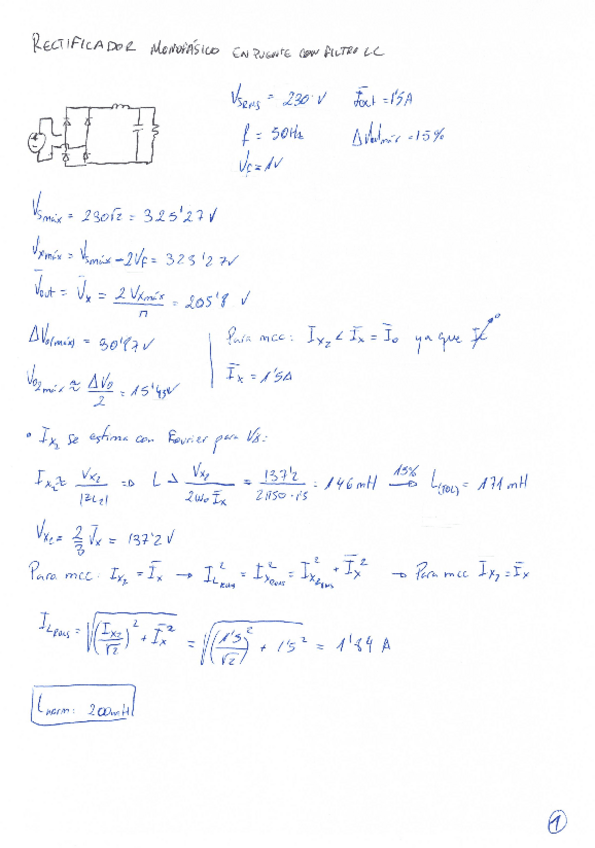 RECTIFICADOR MONOFÁSICO EN PUENTE CON FILTRO LC
V_SRMS = 230 V   I̅out = 1'5A
f = 50Hz   ΔVout máx = 15%
V_F = 1V
V_Smáx = 230√2 = 325'27V
V_Xmáx = V_Smáx − 2V_F = 323'27V
V̅out = V̅x = 2V_Xmáx / π = 205'8 V
ΔVo(máx) = 30'87V
Para mcc: I_X2 < I̅x = I̅o ya que I̅c → 0
V_O2máx ≈ ΔVo / 2 = 15'43V
I̅x = 1'5A
• I_X2 se estima con Fourier para Vx:
I_X2 ≈ V_X2 / |Z_L2| ⇒ L > V_X2 / 2ω₀ I̅x = 137'2 / 2π50·1'5 = 146mH → 15% L(TOL) = 171mH
V_X2 = 2/3 V̅x = 137'2V
Para mcc: I_X2 = I̅x → I²_LRMS = I²_XRMS = I²_X2RMS + I̅x² → Para mcc I̅_X2 = I̅x
I_LRMS = √((I_X2/√2)² + I̅x²) = √((1'5/√2)² + 1'5²) = 1'84 A
L norm: 200mH
1